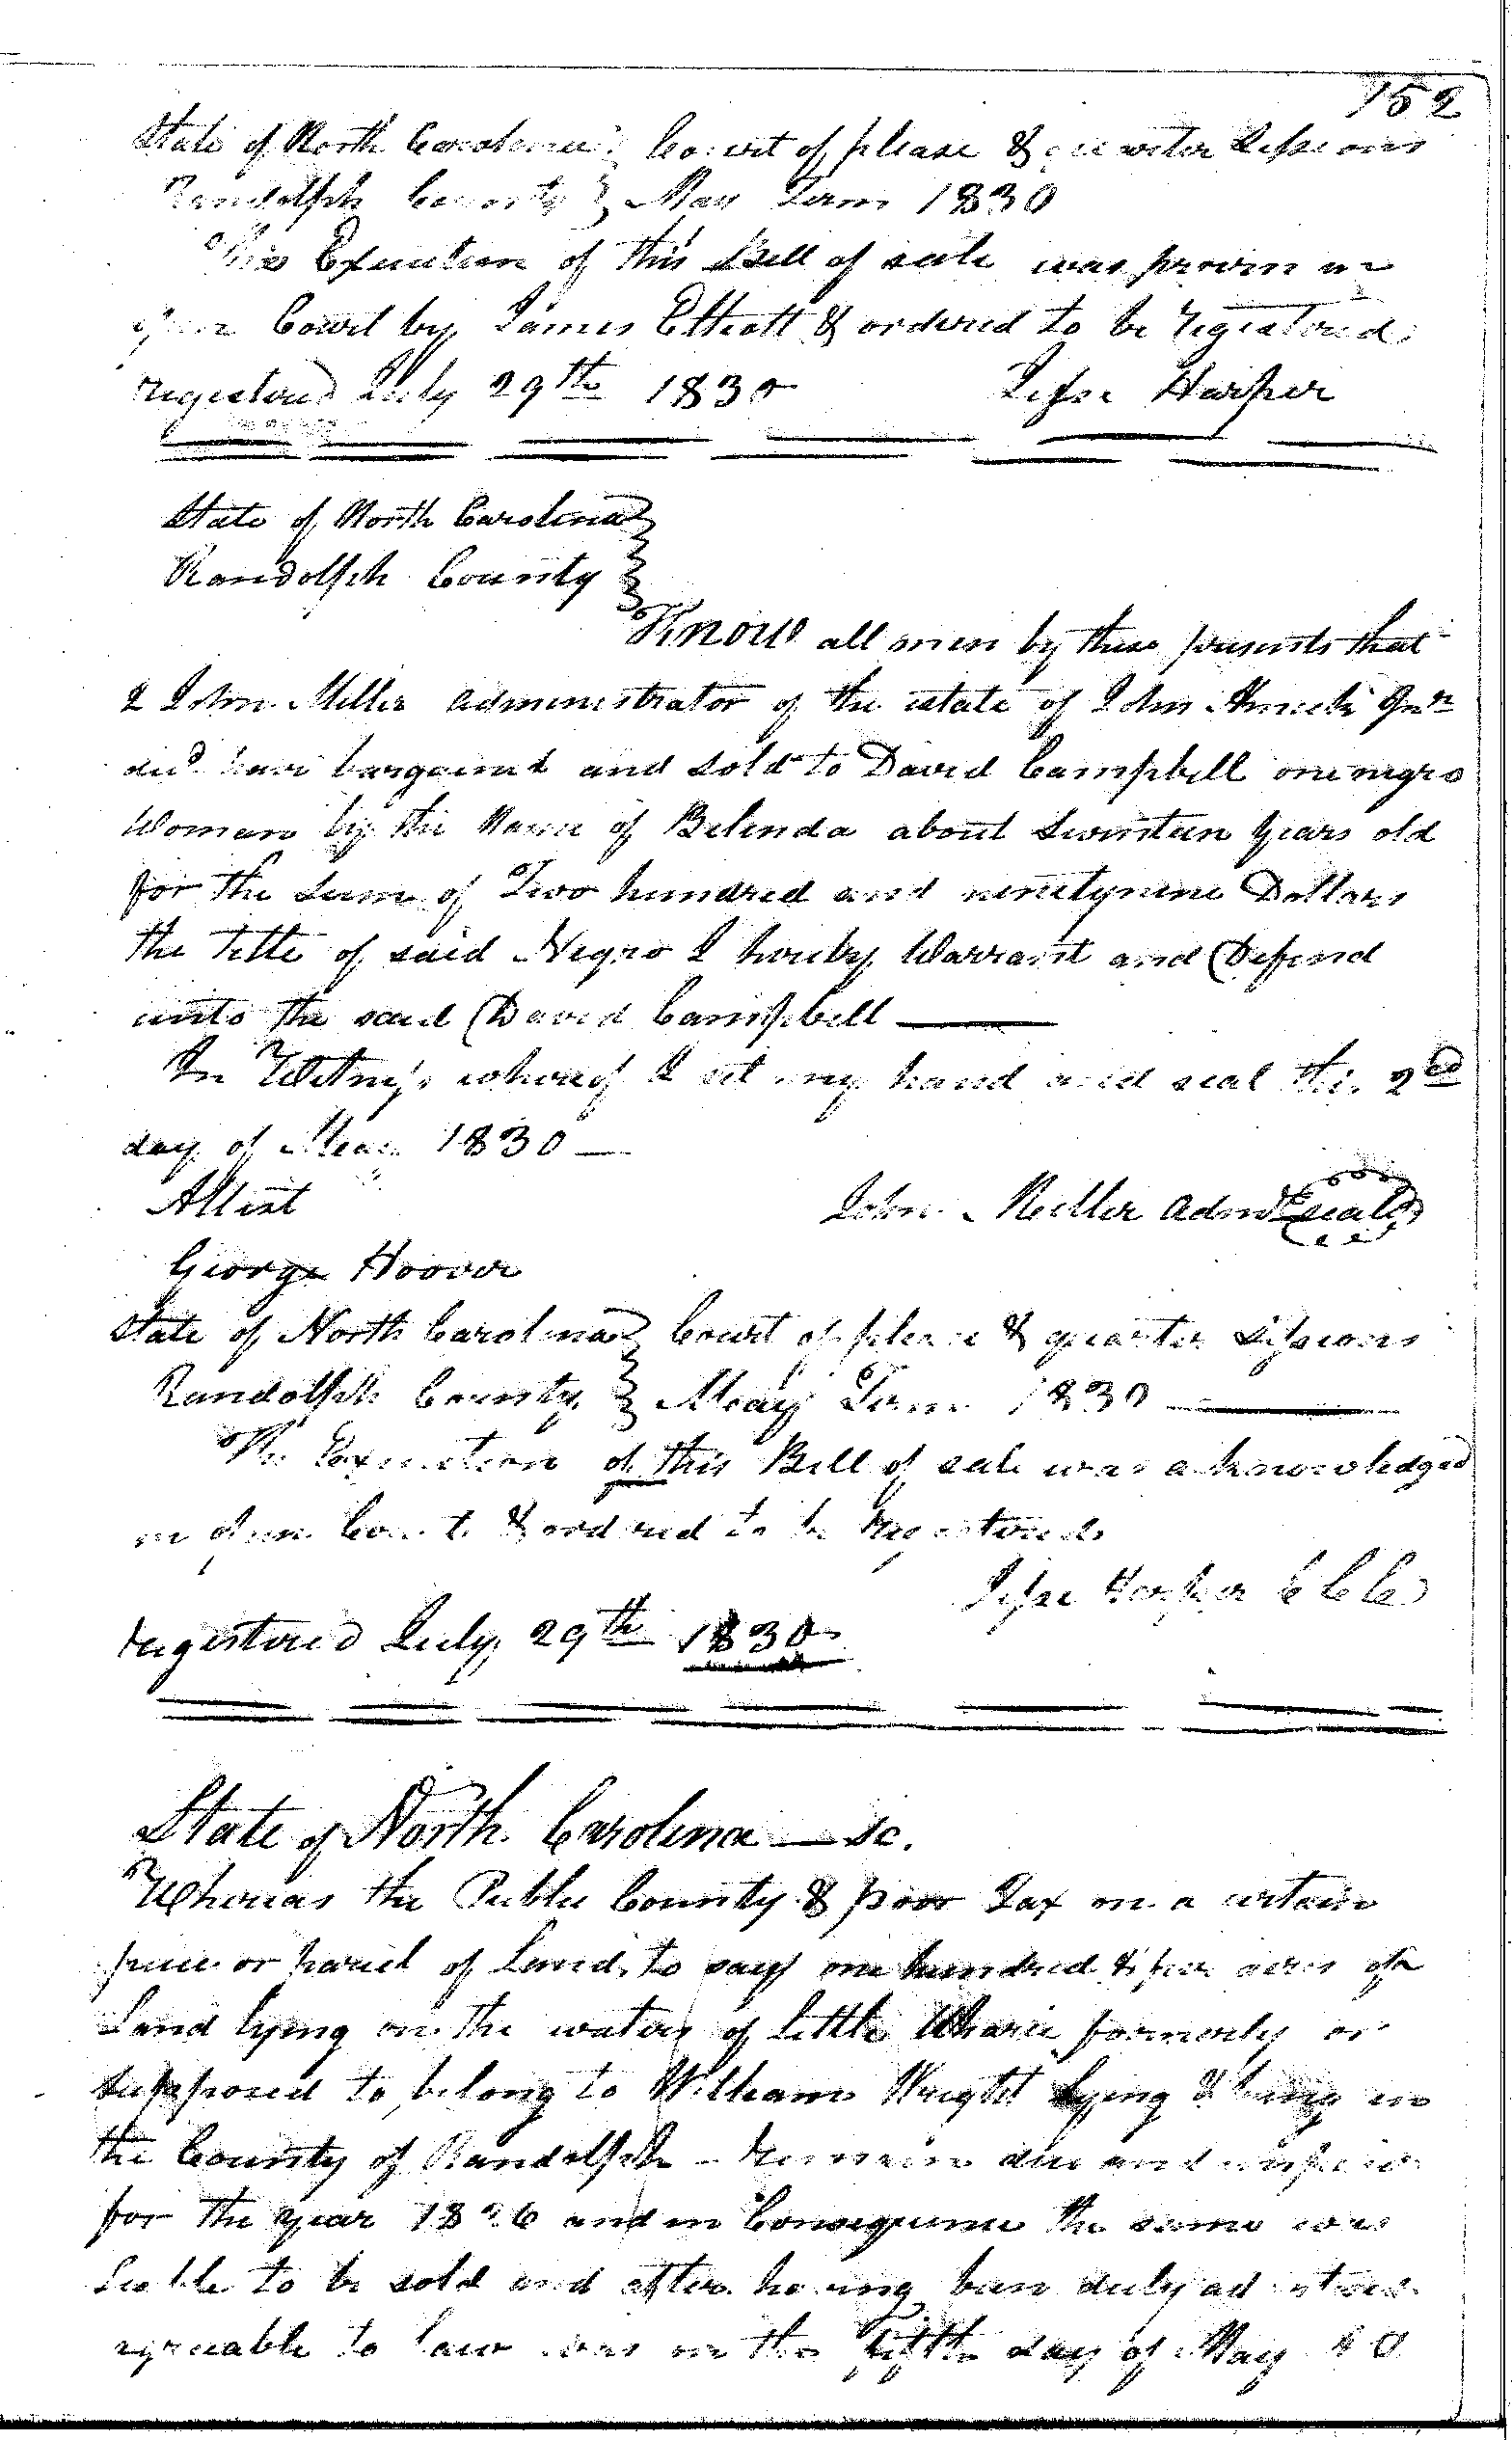 152
State of North Carolina } Court of please & quarter Sessions
Randolph County } May Term 1830
The Execution of this Bill of sale was proven in
open Court by James Elliott & ordered to be registered
registered July 29th 1830 Jesse Harper
State of North Carolina }
Randolph County }
Know all men by these presents that
I John Miller administrator of the estate of John
did have bargained and sold to David Campbell one negro
Woman by the Name of Belinda about seventeen years old
for the sum of Two hundred and ninetynine Dollars
the title of said Negro I hereby Warrant and Defend
unto the said David Campbell
In Witness whereof I set my hand and seal this 2nd
day of May 1830
Attest
John Miller adm seal
George Hoover
State of North Carolina } Court of please & quarter sessions
Randolph County } May Term 1830
The Execution of this Bill of sale was acknowledged
in open Court & ordered to be registered
Jesse Harper C C C
registered July 29th 1830
State of North Carolina — Sc.
Whereas the Public County & poor Tax on a certain
piece or parcel of Land, to say one hundred & five acres of
Land lying on the waters of little Uharie formerly or
supposed to belong to William Wright lying & being in
the County of Randolph - remain due and unpaid
for the year 1826 and in Consequence the same was
liable to be sold and after having been duly advertised
agreeable to law was on the fifth day of May A D